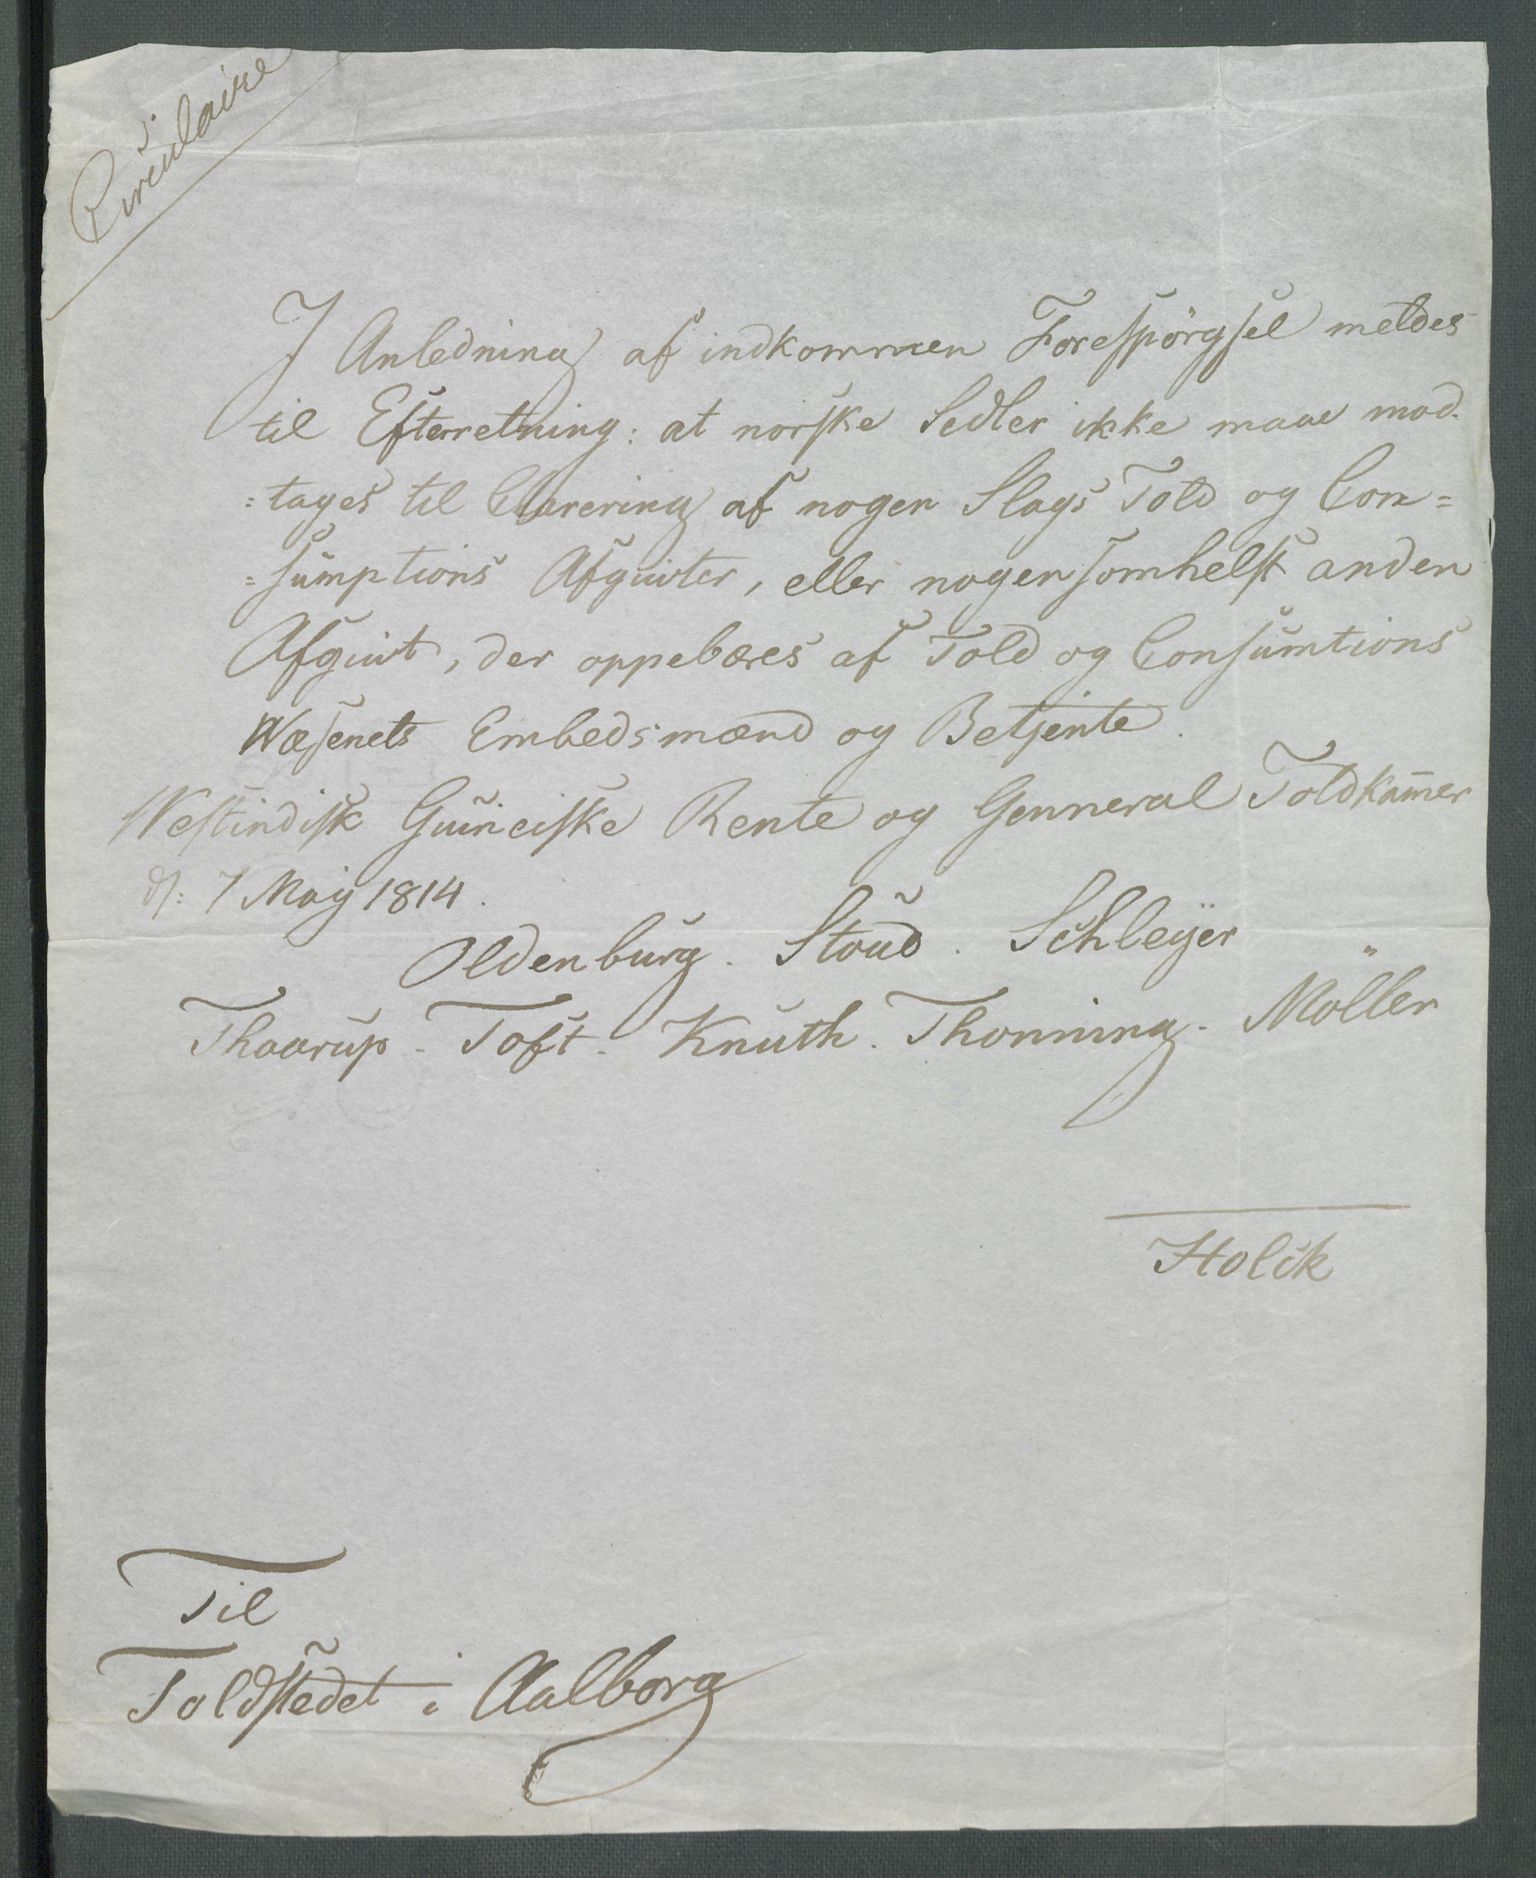 Circulaire
I Anledning af indkommen Forespörgsel meldes
til Efterretning: at norske Sedler ikke maae mod-
=tages til Clarering af nogen Slags Told og Con=
=sumptions Afgivter, eller nogensomhelst anden
Afgivt, der oppebæres af Told og Consumtions
Wæsenets Embedsmænd og Betjente.
Westindisk Guineiske Rente og Genneral Toldkam̄er
d: 7 May 1814.
Oldenburg. Stoud. Schleÿer
Thaarup. Toft. Knuth. Thonning. Möller
Holck
Til
Toldstedet i Aalborg